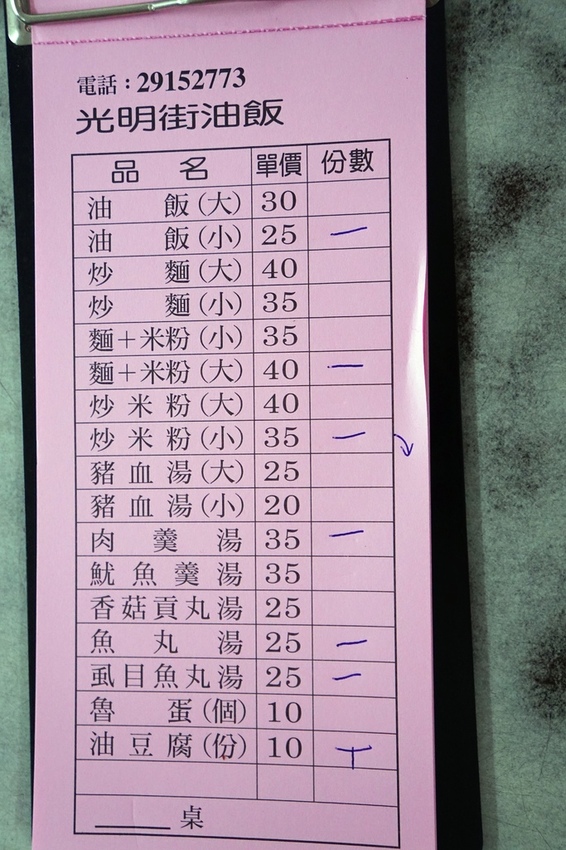 電話：29152773
光明街油飯
品名 單價 份數
油飯(大) 30
油飯(小) 25 一
炒麵(大) 40
炒麵(小) 35
麵＋米粉(小) 35
麵＋米粉(大) 40 一
炒米粉(大) 40
炒米粉(小) 35 一
豬血湯(大) 25
豬血湯(小) 20
肉羹湯 35 一
魷魚羹湯 35
香菇貢丸湯 25
魚丸湯 25 一
虱目魚丸湯 25 一
魯蛋(個) 10
油豆腐(份) 10 丅
桌